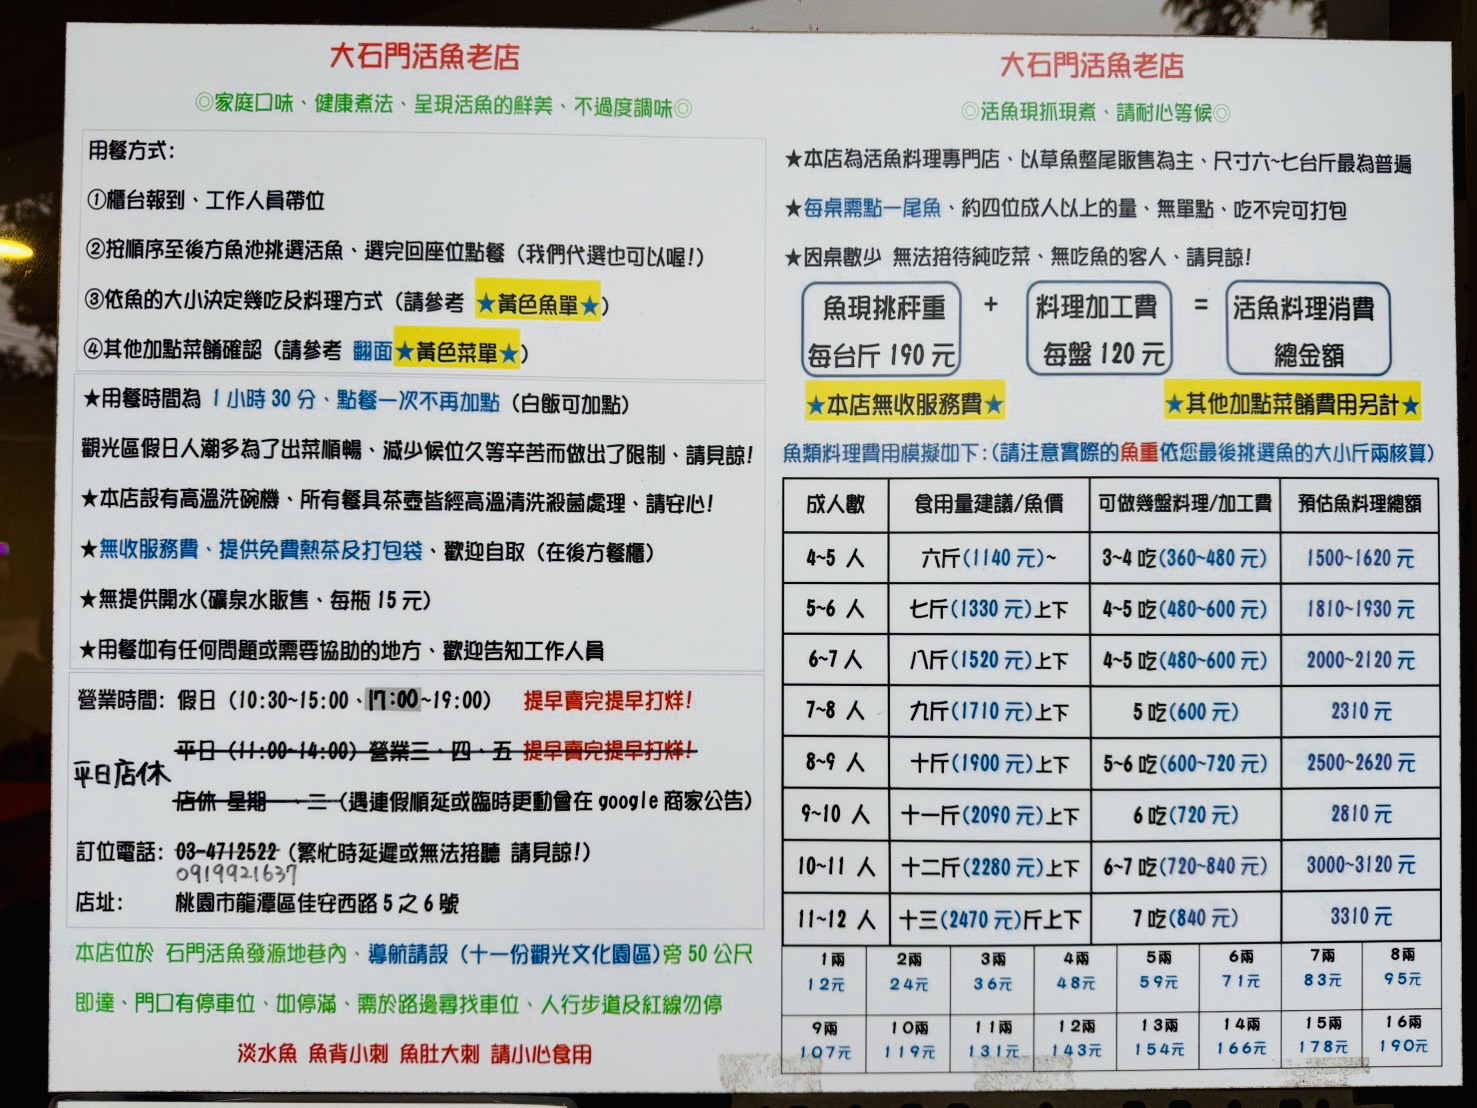 大石門活魚老店
◎家庭口味、健康煮法、呈現活魚的鮮美、不過度調味◎
用餐方式:
①櫃台報到、工作人員帶位
②按順序至後方魚池挑選活魚、選完回座位點餐（我們代選也可以喔!）
③依魚的大小決定幾吃及料理方式（請參考 ★黃色魚單★）
④其他加點菜餚確認（請參考 翻面★黃色菜單★）
★用餐時間為 1 小時 30 分、點餐一次不再加點（白飯可加點）
觀光區假日人潮多為了出菜順暢、減少候位久等辛苦而做出了限制、請見諒!
★本店設有高溫洗碗機、所有餐具茶壺皆經高溫清洗殺菌處理、請安心!
★無收服務費、提供免費熱茶及打包袋、歡迎自取（在後方餐櫃）
★無提供開水(礦泉水販售、每瓶 15 元)
★用餐如有任何問題或需要協助的地方、歡迎告知工作人員
營業時間: 假日（10:30~15:00、17:00~19:00） 提早賣完提早打烊!
平日（11:00~14:00）營業三、四、五 提早賣完提早打烊!
平日店休
店休 星期一、二（遇連假順延或臨時更動會在 google 商家公告）
訂位電話: 03-4712522（繁忙時延遲或無法接聽 請見諒!）
0919921637
店址: 桃園市龍潭區佳安西路 5 之 6 號
本店位於 石門活魚發源地巷內、導航請設（十一份觀光文化園區)旁 50 公尺
即達、門口有停車位、如停滿、需於路邊尋找車位、人行步道及紅線勿停
淡水魚 魚背小刺 魚肚大刺 請小心食用
大石門活魚老店
◎活魚現抓現煮、請耐心等候◎
★本店為活魚料理專門店、以草魚整尾販售為主、尺寸六~七台斤最為普遍
★每桌需點一尾魚、約四位成人以上的量、無單點、吃不完可打包
★因桌數少 無法接待純吃菜、無吃魚的客人、請見諒!
魚現挑秤重 + 料理加工費 = 活魚料理消費
每台斤 190 元 每盤 120 元 總金額
★本店無收服務費★ ★其他加點菜餚費用另計★
魚類料理費用模擬如下:(請注意實際的魚重依您最後挑選魚的大小斤兩核算)
成人數 食用量建議/魚價 可做幾盤料理/加工費 預估魚料理總額
4~5 人 六斤(1140 元)~ 3~4 吃(360~480 元) 1500~1620 元
5~6 人 七斤(1330 元)上下 4~5 吃(480~600 元) 1810~1930 元
6~7 人 八斤(1520 元)上下 4~5 吃(480~600 元) 2000~2120 元
7~8 人 九斤(1710 元)上下 5 吃(600 元) 2310 元
8~9 人 十斤(1900 元)上下 5~6 吃(600~720 元) 2500~2620 元
9~10 人 十一斤(2090 元)上下 6 吃(720 元) 2810 元
10~11 人 十二斤(2280 元)上下 6~7 吃(720~840 元) 3000~3120 元
11~12 人 十三(2470 元)斤上下 7 吃(840 元) 3310 元
1兩 2兩 3兩 4兩 5兩 6兩 7兩 8兩
12元 24元 36元 48元 59元 71元 83元 95元
9兩 10兩 11兩 12兩 13兩 14兩 15兩 16兩
107元 119元 131元 143元 154元 166元 178元 190元